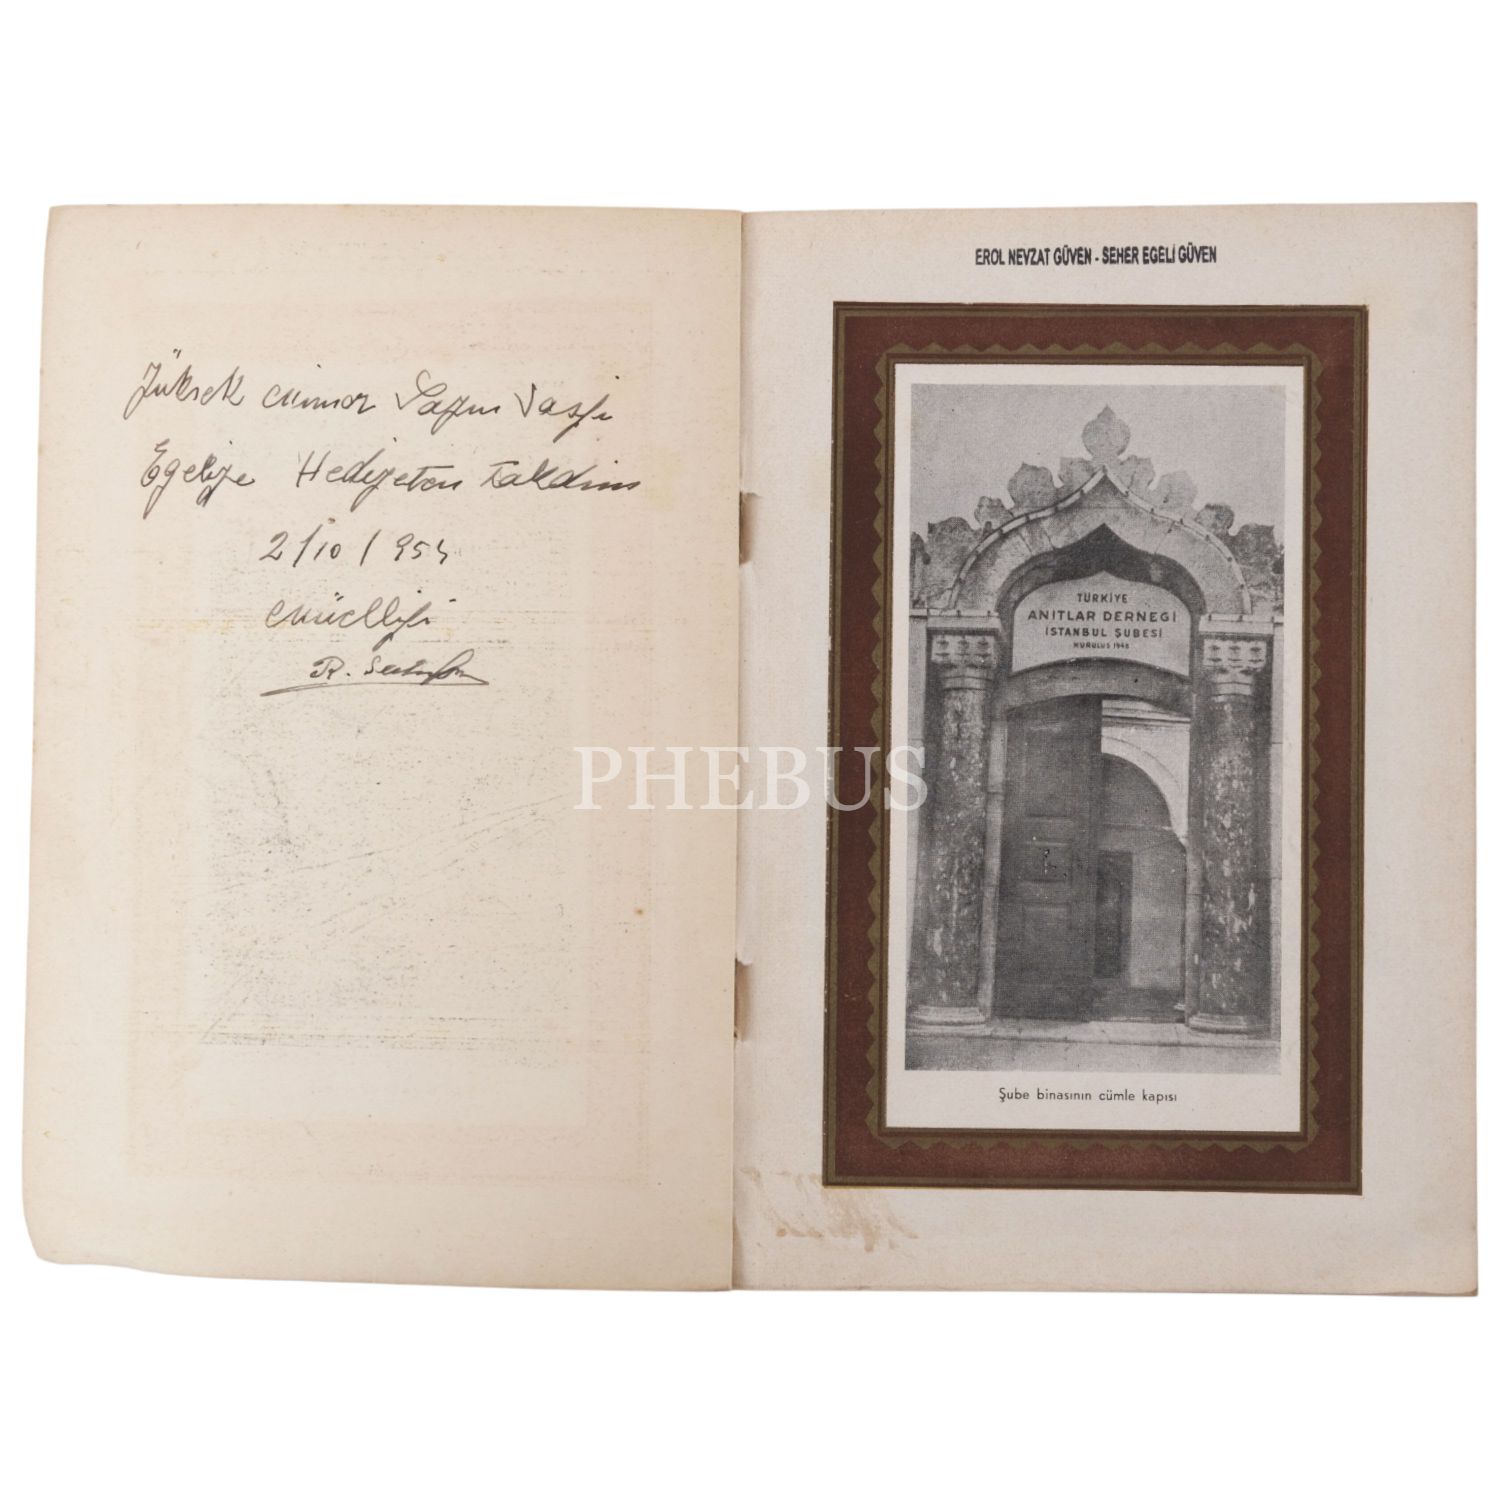 Yüksek mimar Sayın Vasfi
Egeliye Hediyeten takdim
2/10/954
Müellifi
R.
EROL NEVZAT GÜVEN - SEHER EGELİ GÜVEN
TÜRKİYE
ANITLAR DERNEĞİ
İSTANBUL ŞUBESİ
KURULUŞ 1946
Şube binasının cümle kapısı
PHEBUS